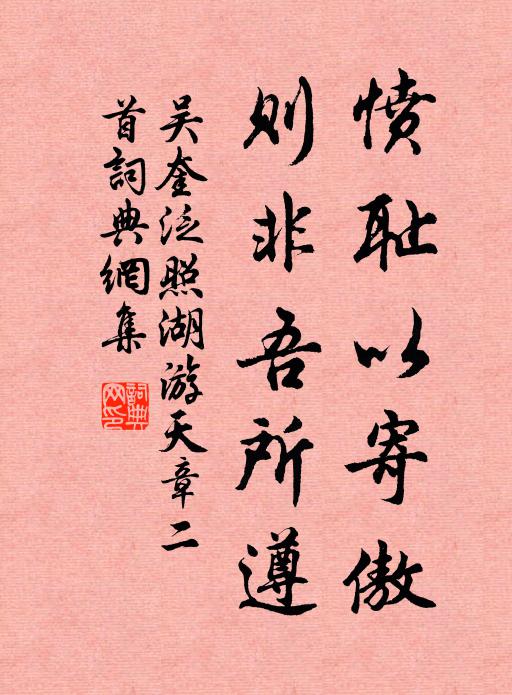 憤耻以寄傲
则非吾所遵
吴奎泛照湖游天章二
首詞典網集
詞典網印